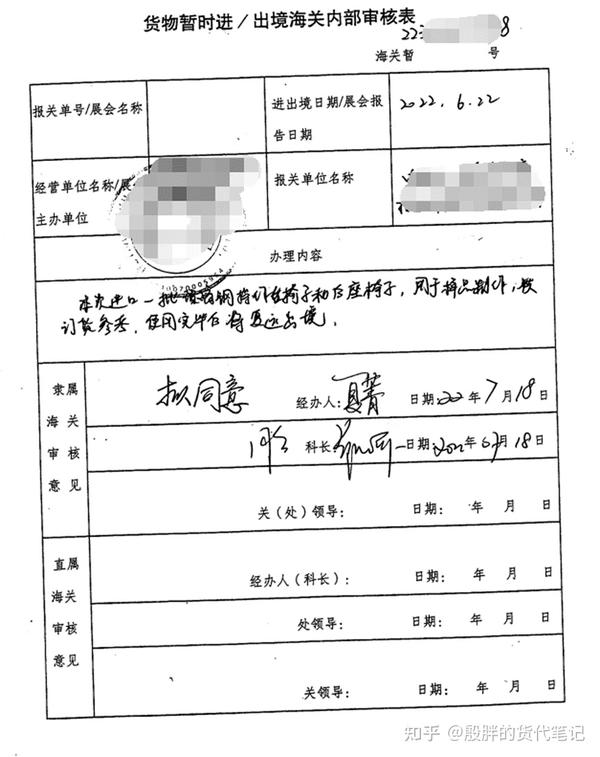 货物暂时进/出境海关内部审核表
223 8
海关暂 号
报关单号/展会名称
进出境日期/展会报告日期
2022.6.22
经营单位名称/展
主办单位
报关单位名称
办理内容
本次进口一批 椅子和后座椅子,用于样品制作,供
订货参考,使用完毕后将复运出境.
隶属海关审核意见
拟同意 经办人: 夏菁 日期2022年7月18日
科长 日期:2022年07月18日
关(处)领导: 日期: 年 月 日
直属海关审核意见
经办人(科长): 日期: 年 月 日
处领导: 日期: 年 月 日
关领导: 日期: 年 月 日
知乎 @殷胖的货代笔记